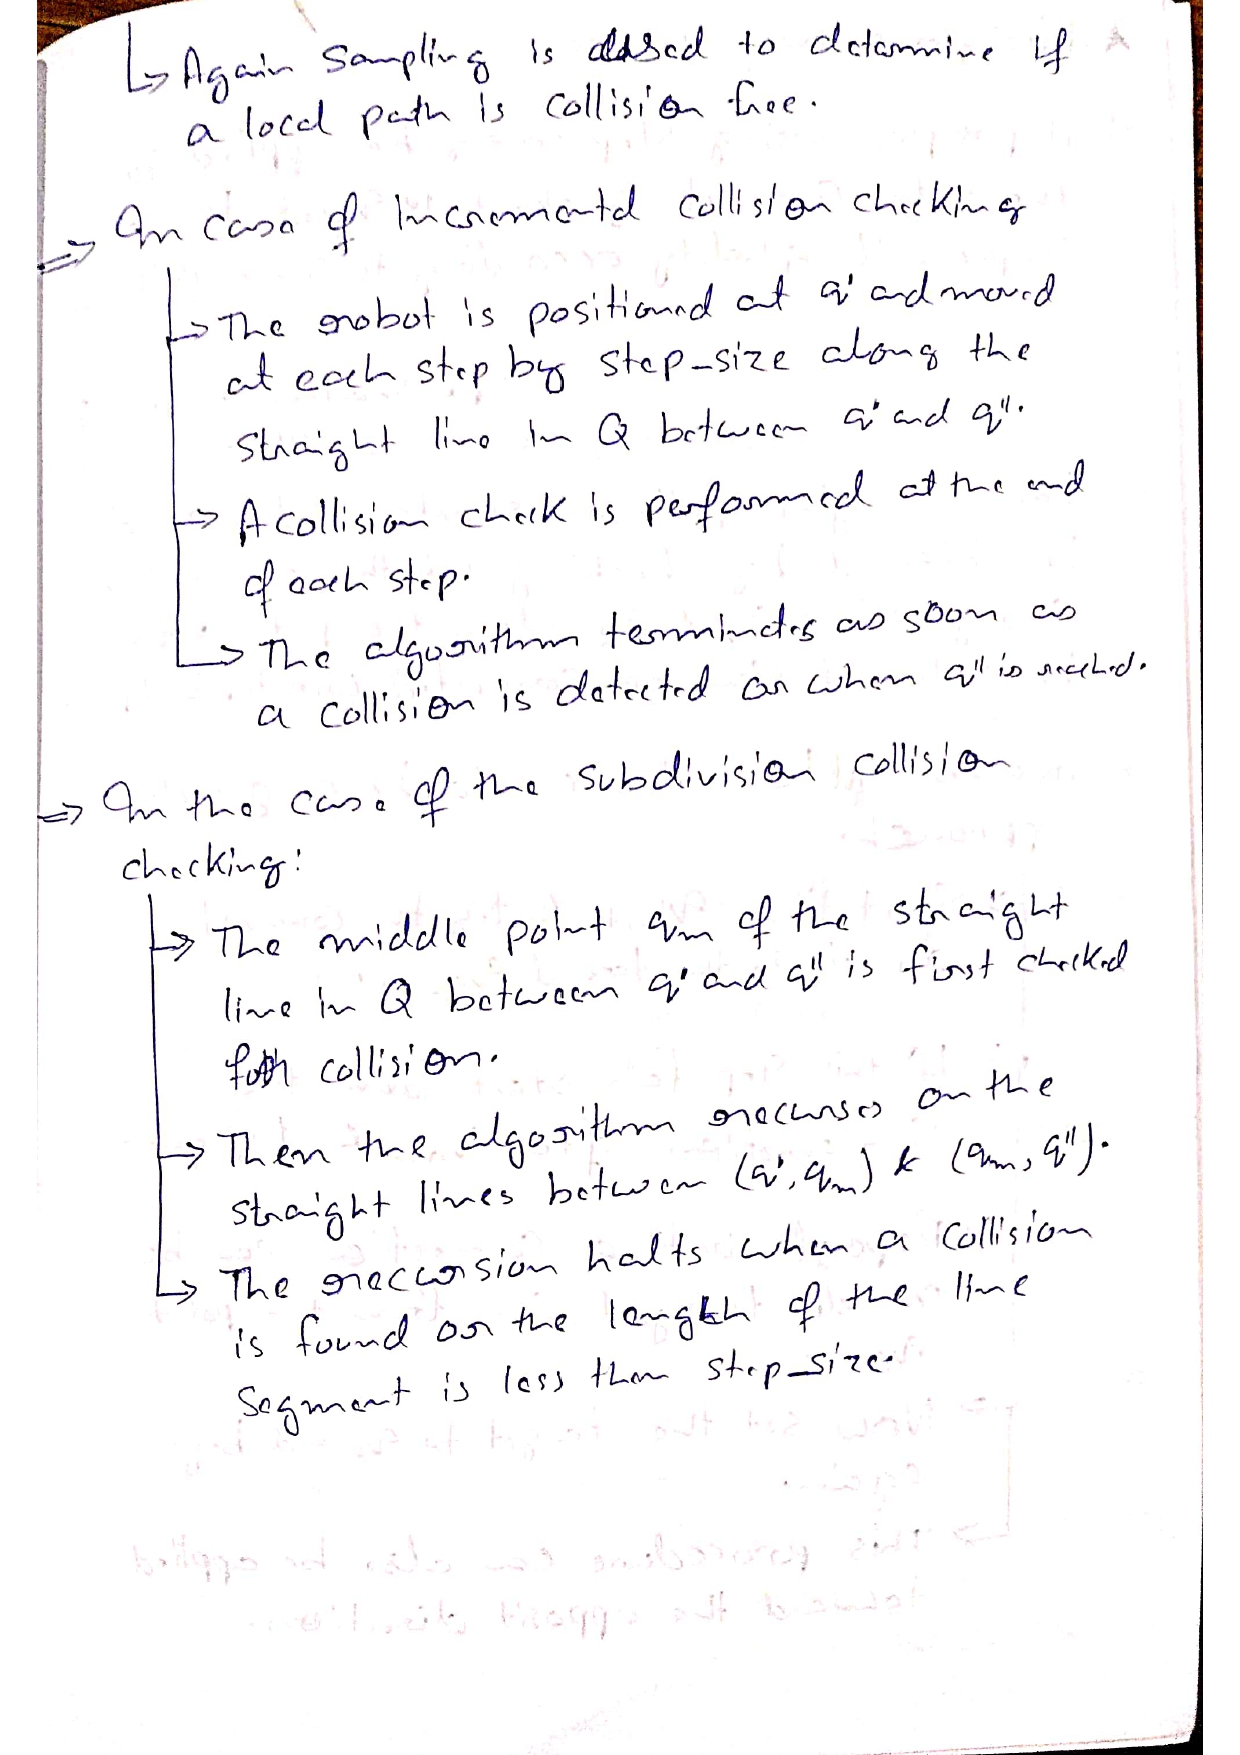 ↳ Again Sampling is used to determine if
a local path is collision free.
⇒ In case of Incremental collision checking
→ The robot is positioned at q' and moved
at each step by step_size along the
straight line in Q between q' and q''.
→ A collision check is performed at the end
of each step.
→ The algorithm terminates as soon as
a collision is detected or when q'' is reached.
⇒ In the case of the subdivision collision
checking:
→ The middle point qm of the straight
line in Q between q' and q'' is first checked
for collision.
→ Then the algorithm recurses on the
straight lines between (q', qm) & (qm, q'').
↳ The reccursion halts when a collision
is found or the length of the line
segment is less than step_size.